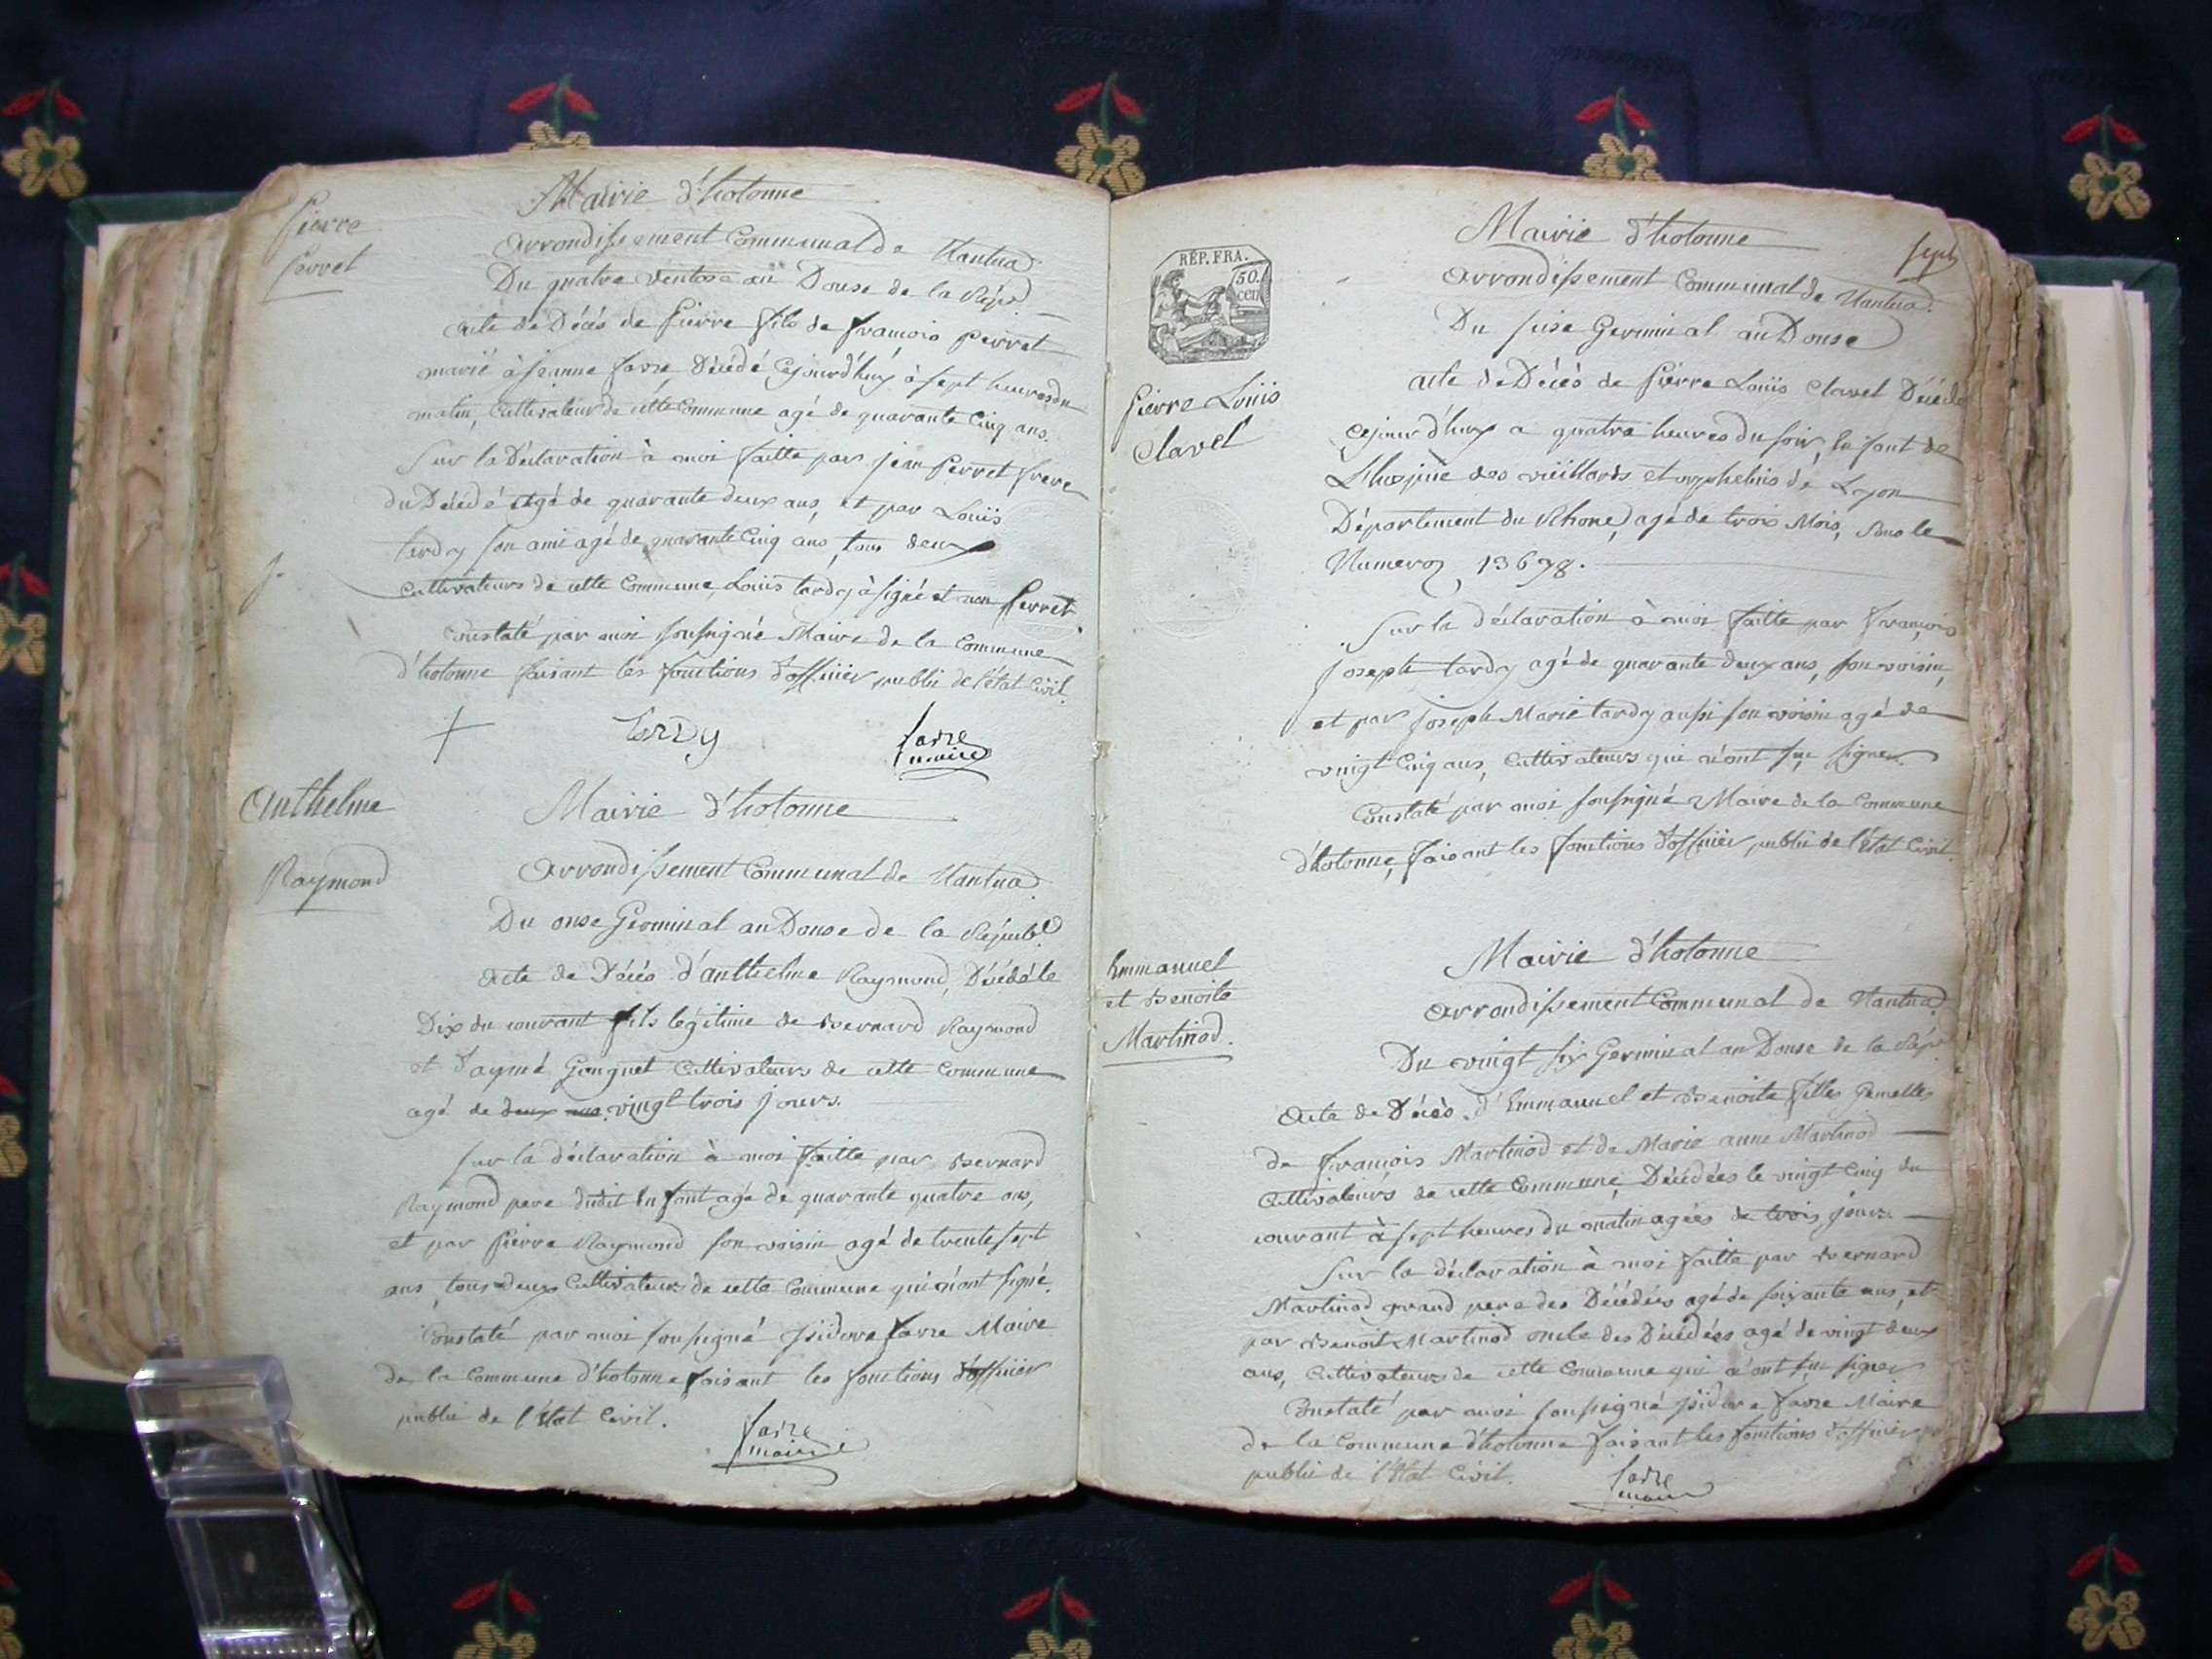 Pierre
Perret
Mairie d'hotonne
arrondissement Communal de Nantua
Du quatre Ventose an Douse de la Rép.
acte de Décés de Pierre fils de françois Perret
marié à jeanne favre, Décédé Cejourd'huy à sept heures du
matin, Cultivateur de cette Commune agé de quarante Cinq ans.
Sur la Déclaration à moi faitte par jean Perret frere
du Décédé agé de quarante deux ans, et par Louis
tardy son ami agé de quarante Cinq ans, tous deux
Cultivateurs de cette Commune, Louis tardy à signé et non Perret.
Constaté par moi soussigné Maire de la Commune
d'hotonne faisant les fonctions d'officier public de l'état Civil.
Tardy
favre
maire
Anthelme
Raymond
Mairie d'hotonne
arrondissement Communal de Nantua
Du onse Germinal an Douse de la Républ.
acte de Décés d'anthelme Raymond, Décédé le
Dix du courant fils légitime de Bernard Raymond
et d'aymé Gonguet Cultivateurs de cette Commune
agé de deux vingt trois jours.
sur la déclaration à moi faitte par Bernard
Raymond pere dudit Enfant agé de quarante quatre ans,
et par Pierre Raymond son voisin agé de trente sept
ans, tous deux Cultivateurs de cette Commune qui n'ont signé.
Constaté par moi soussigné isidore favre Maire
de la Commune d'hotonne faisant les fonctions d'officier
public de l'état Civil.
favre
maire
sept
RÉP. FRA.
50.
cen
Pierre Louis
Clavel
Mairie d'hotonne
arrondissement Communal de Nantua.
Du seise Germinal an Douse
acte de Décés de Pierre Louis Clavel Décédé
Cejourd'huy a quatre heures du soir, Enfant de
L'hospice des vieillards et orphelins de Lyon
Département du Rhone, agé de trois Mois, sous le
Numero 13698.
Sur la déclaration à moi faitte par françois
joseph tardy agé de quarante deux ans, son voisin,
et par joseph Marie tardy aussi son voisin agé de
vingt Cinq ans, Cultivateurs qui n'ont sçu signer.
Constaté par moi soussigné Maire de la Commune
d'hotonne, faisant les fonctions d'officier public de l'état Civil.
Emmanuel
et Benoite
Martinod.
Mairie d'hotonne
arrondissement Communal de Nantua
Du vingt six Germinal an Douse de la Rép.
acte de Décès d'Emmanuel et Benoite filles Gemelles
de françois Martinod et de Marie anne Martinod
Cultivateurs de cette Commune, Décédées le vingt Cinq du
courant à sept heures du matin agées de trois jours.
Sur la déclaration à moi faitte par Bernard
Martinod grand pere des Décédées agé de soixante ans, et
par Benoit Martinod oncle des Décédées agé de vingt deux
ans, Cultivateurs de cette Commune qui n'ont sçu signer
Constaté par moi soussigné isidore favre Maire
de la Commune d'hotonne faisant les fonctions d'officier
public de l'état Civil.
favre
maire